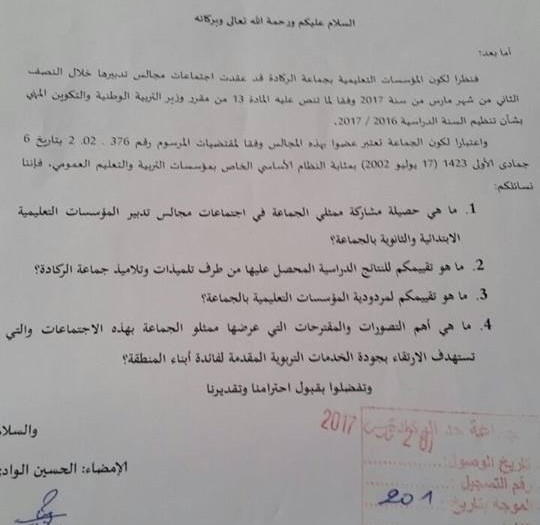 السلام عليكم ورحمة الله تعالى وبركاته
أما بعد:
فنظرا لكون المؤسسات التعليمية بجماعة الركادة قد عقدت اجتماعات مجالس تدبيرها خلال النصف
الثاني من شهر مارس من سنة 2017 وفقا لما تنص عليه المادة 13 من مقرر وزير التربية الوطنية والتكوين المهني
بشأن تنظيم السنة الدراسية 2016 / 2017.
واعتبارا لكون الجماعة تعتبر عضوا بهذه المجالس وفقا لمقتضيات المرسوم رقم 376 . 02. 2 بتاريخ 6
جمادى الأولى 1423 (17 يوليو 2002) بمثابة النظام الأساسي الخاص بمؤسسات التربية والتعليم العمومي، فإننا
نسائلكم:
1. ما هي حصيلة مشاركة ممثلي الجماعة في اجتماعات مجالس تدبير المؤسسات التعليمية
الابتدائية والثانوية بالجماعة؟
2. ما هو تقييمكم للنتائج الدراسية المحصل عليها من طرف تلميذات وتلاميذ جماعة الركادة؟
3. ما هو تقييمكم لمردودية المؤسسات التعليمية بالجماعة؟
4. ما هي أهم التصورات والمقترحات التي عرضها ممثلو الجماعة بهذه الاجتماعات والتي
تستهدف الارتقاء بجودة الخدمات التربوية المقدمة لفائدة أبناء المنطقة؟
وتفضلوا بقبول احترامنا وتقديرنا
والسلا
الإمضاء: الحسين الواد
2017
تاريخ الوصول:
رقم التسجيل
201